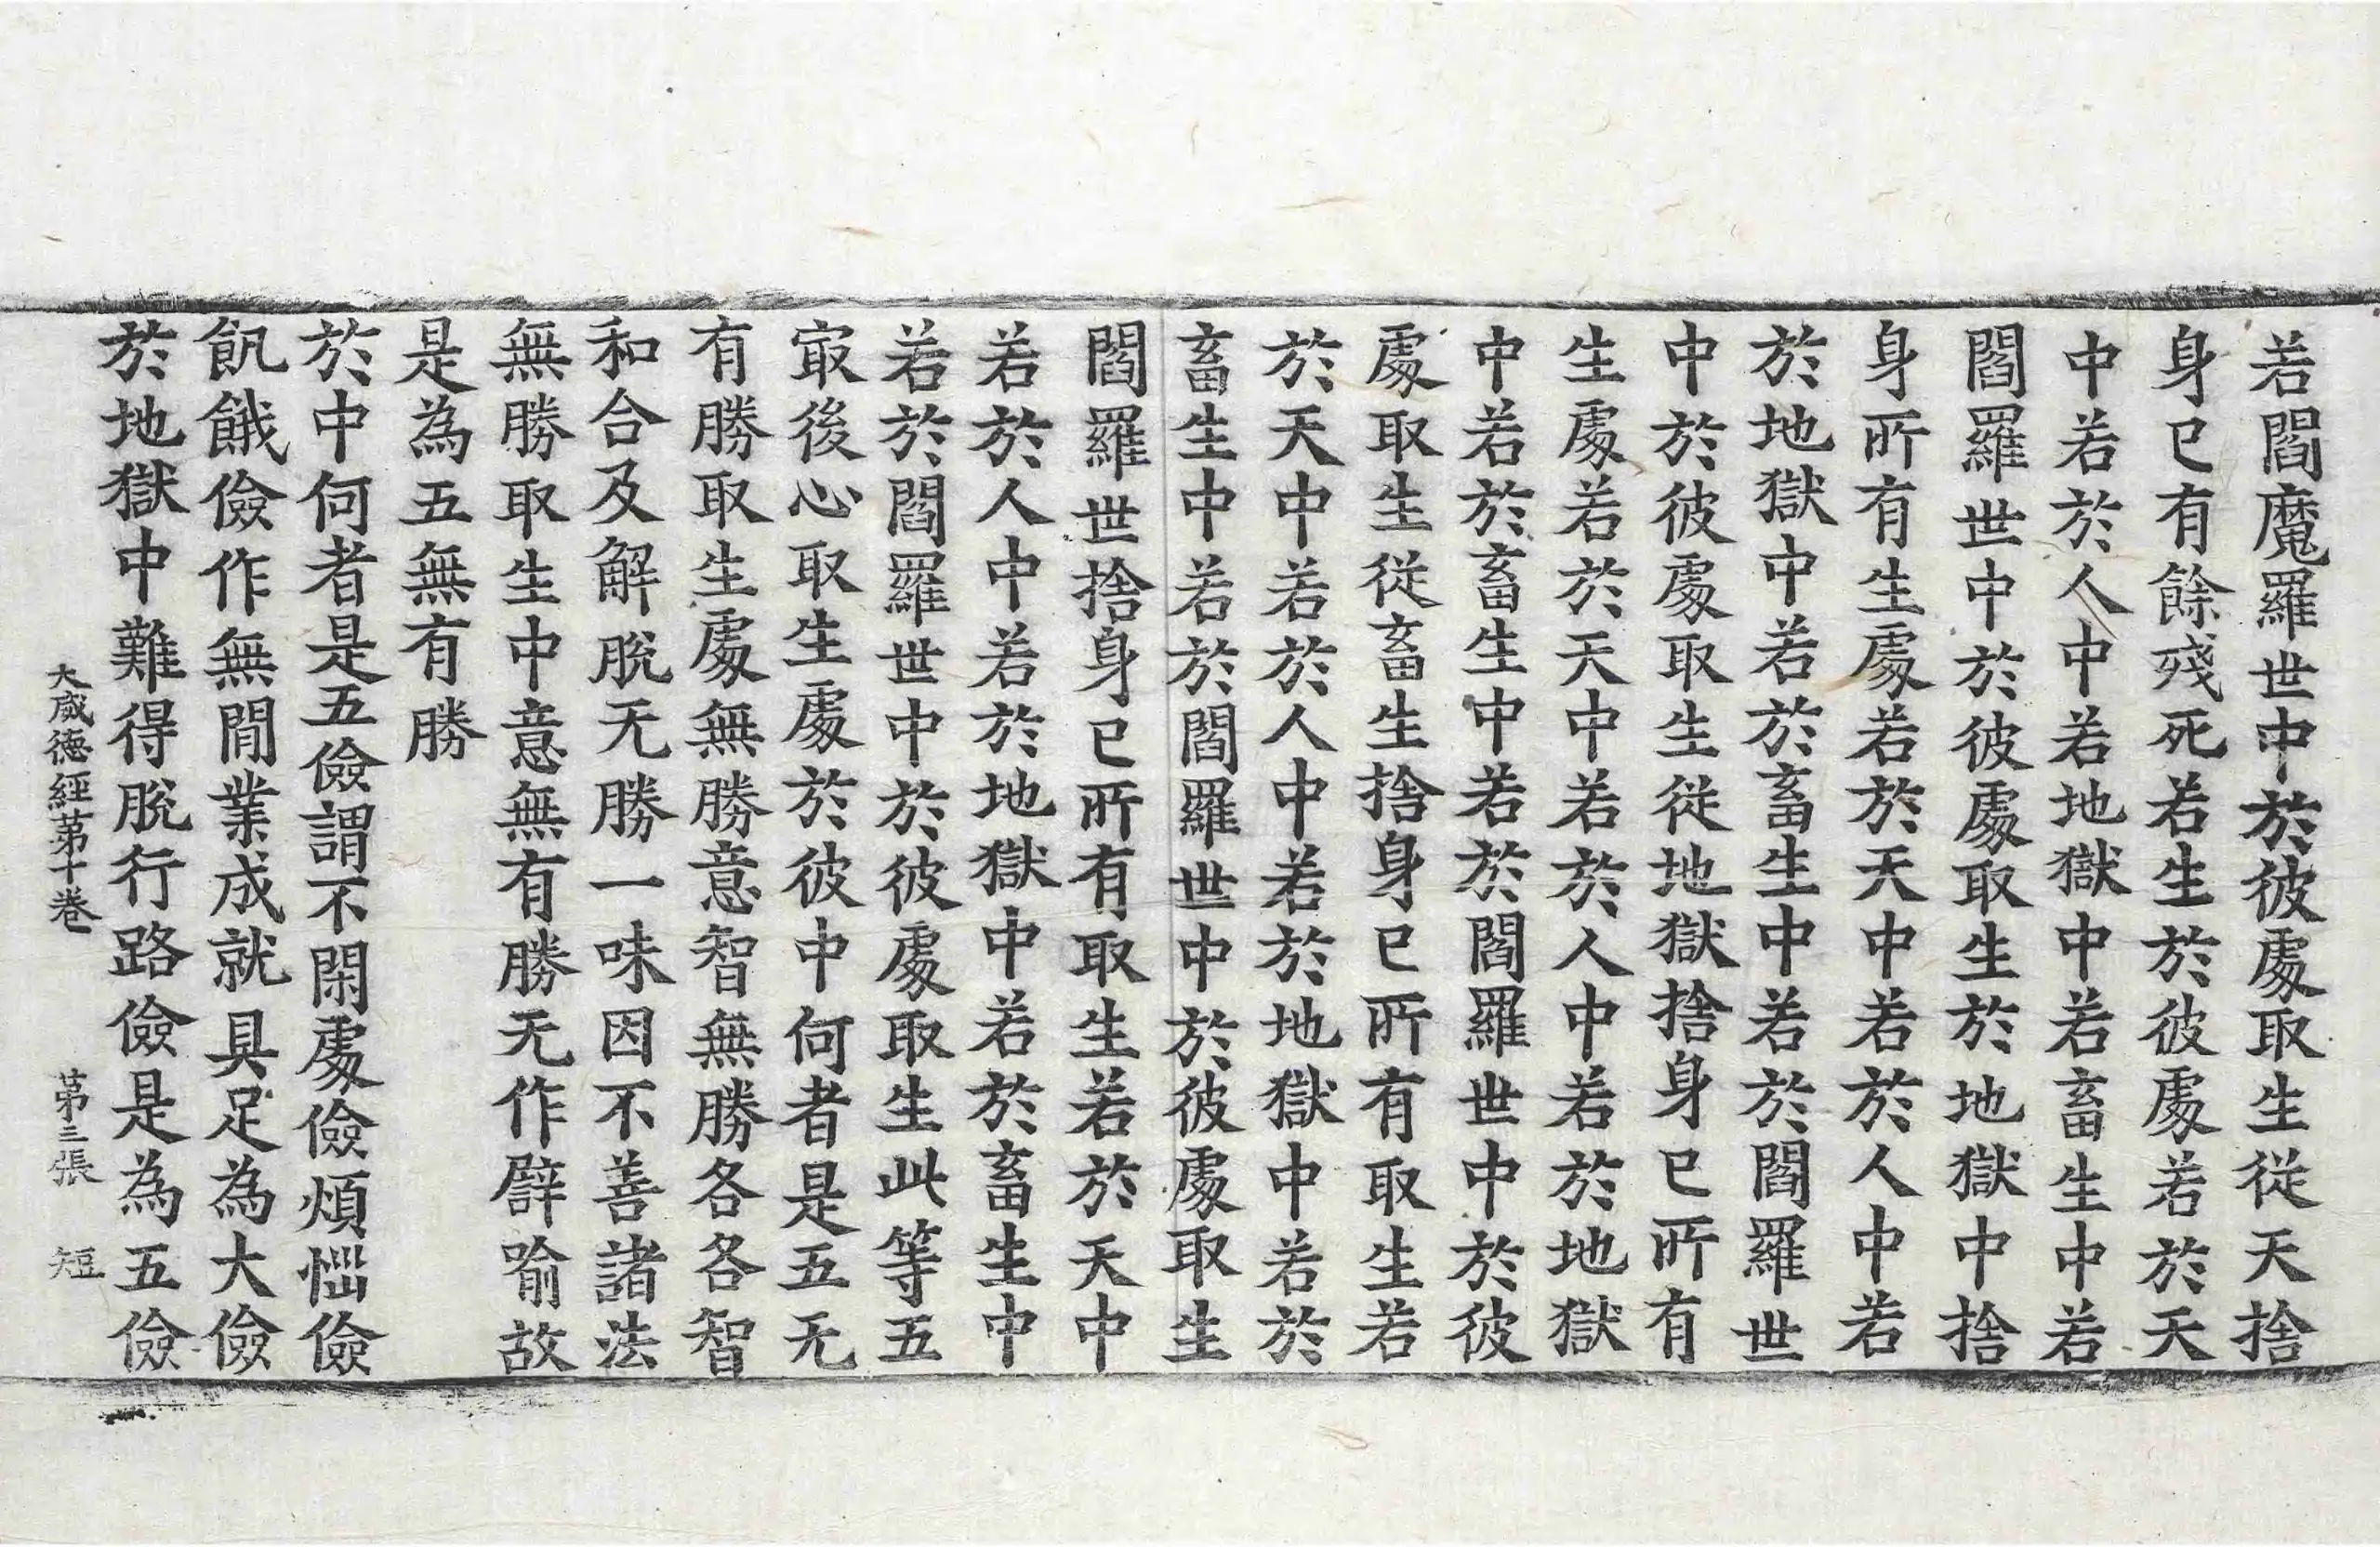 若閻魔羅世中於彼處取生從天捨
身已有餘殘死若生於彼處若於天
中若於人中若地獄中若畜生中若
閻羅世中於彼處取生於地獄中捨
身所有生處若於天中若於人中若
於地獄中若於畜生中若於閻羅世
中於彼處取生從地獄捨身已所有
生處若於天中若於人中若於地獄
中若於畜生中若於閻羅世中於彼
處取生從畜生捨身已所有取生若
於天中若於人中若於地獄中若於
畜生中若於閻羅世中於彼處取生
閻羅世捨身已所有取生若於天中
若於人中若於地獄中若於畜生中
若於閻羅世中於彼處取生此等五
㝡後心取生處於彼中何者是五无
有勝取生處無勝意智無勝各各智
和合及解脫无勝一味因不善諸法
無勝取生中意無有勝无作辟喻故
是為五無有勝
於中何者是五儉謂不閑處儉煩惱儉
飢餓儉作無間業成就具足為大儉
於地獄中難得脫行路儉是為五儉
大威德經第十卷 第三張 短